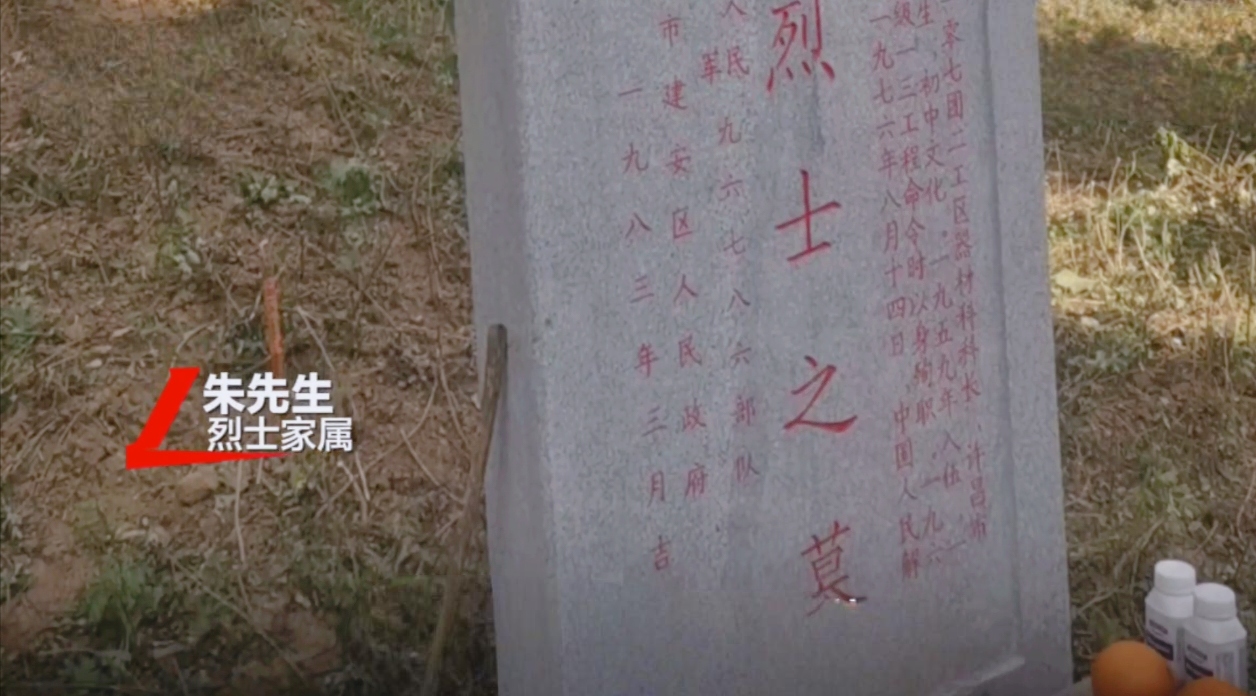 零七团二工区器材科科长、许昌市
生，初中文化。一九五九年入伍
级一三工程命令时以身殉职。一九六
一九七六年八月十四日 中国人民解
烈士之墓
人民九六七八六部队
军
市建安区人民政府
一九八三年三月吉
朱先生
烈士家属